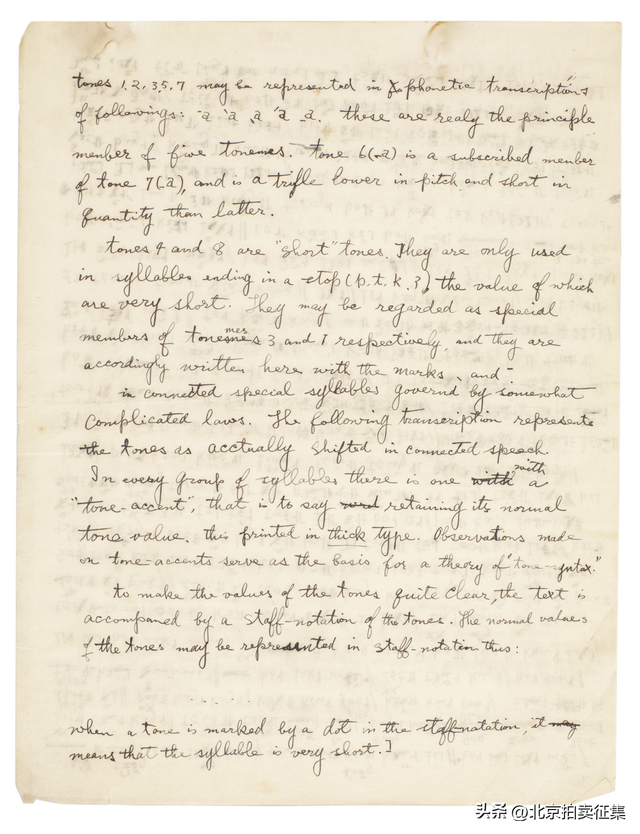 tones 1, 2, 3, 5, 7 may be represented in phonetic transcriptions
of followings: ¯a ˊa ˎa ˋa ˍa. these are realy the principle
member of five tonemes. tone 6(-a) is a subscribed member
of tone 7(ˍa), and is a trifle lower in pitch and short in
quantity than latter.
tones 4 and 8 are "short" tones. They are only used
in syllables ending in a stop (p. t. k. ʔ), the value of which
are very short. They may be regarded as special
members of tonesmes 3 and 1 respectively, and they are
accordingly written here with the marks ˎ and ¯
in connected special syllables governd by somewhat
complicated laws. The following transcription represents
the tones as acctually shifted in connected speech.
In every group of syllables there is one with a
"tone-accent", that is to say retaining its normal
tone value. this printed in thick type. Observations made
on tone-accents serve as the basis for a theory of "tone-syntax."
to make the values of the tones quite clear, the text is
accompaned by a staff-notation of the tones. The normal values
of the tones may be represented in staff-notation thus:
......
when a tone is marked by a dot in the staff-notation, it
means that the syllable is very short.]
头条 @北京拍卖征集